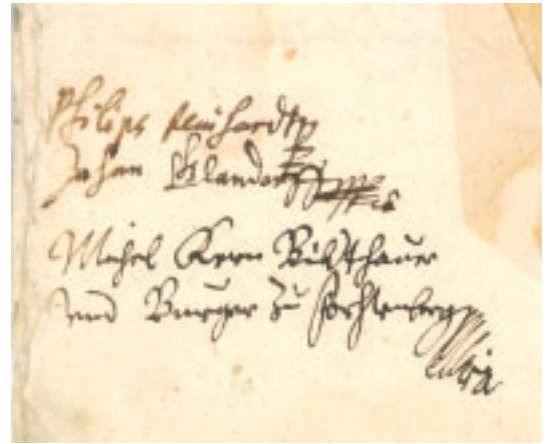 Philips Reinhardt
Johan
Michel Kern Bildthauer
und Burger zu Forchtenberg